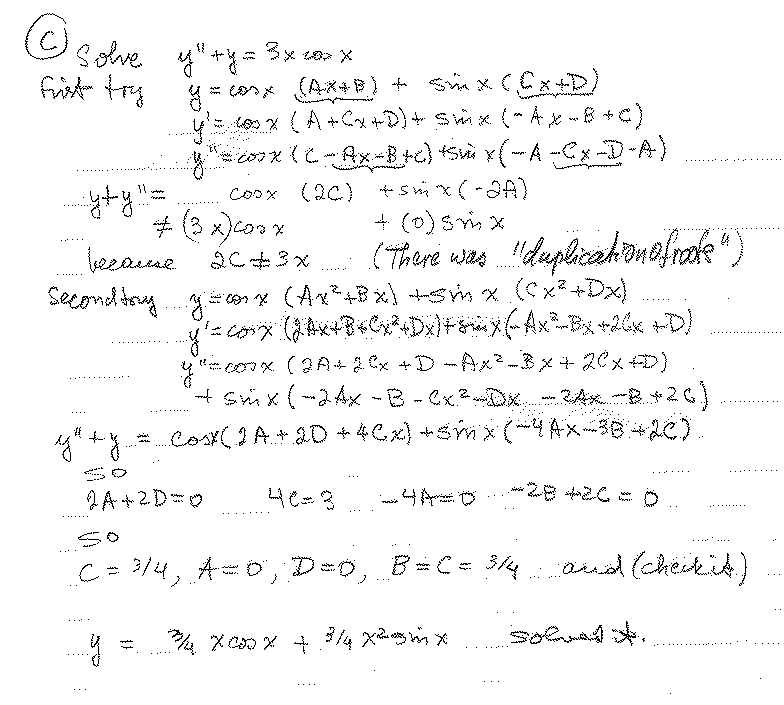 (C) Solve y"+y = 3x cos x
First try y = cos x (Ax+B) + sin x (Cx+D)
y' = cos x (A+Cx+D) + sin x (-Ax-B+C)
y" = cos x (C-Ax-B+C) + sin x (-A-Cx-D-A)
y+y" = cos x (2C) + sin x (-2A)
≠ (3x) cos x + (0) sin x
because 2C ≠ 3x (There was "duplication of roots")
Second try y = cos x (Ax²+Bx) + sin x (Cx²+Dx)
y' = cos x (2Ax+B+Cx²+Dx) + sin x (-Ax²-Bx+2Cx+D)
y" = cos x (2A+2Cx+D-Ax²-Bx+2Cx+D)
+ sin x (-2Ax-B-Cx²-Dx-2Ax-B+2C)
y"+y = cos x (2A+2D+4Cx) + sin x (-4Ax-3B+2C)
so
2A+2D=0 4C=3 -4A=0 -2B+2C=0
so
C = 3/4, A=0, D=0, B=C= 3/4 and (check it)
y = 3/4 x cos x + 3/4 x² sin x solves it.